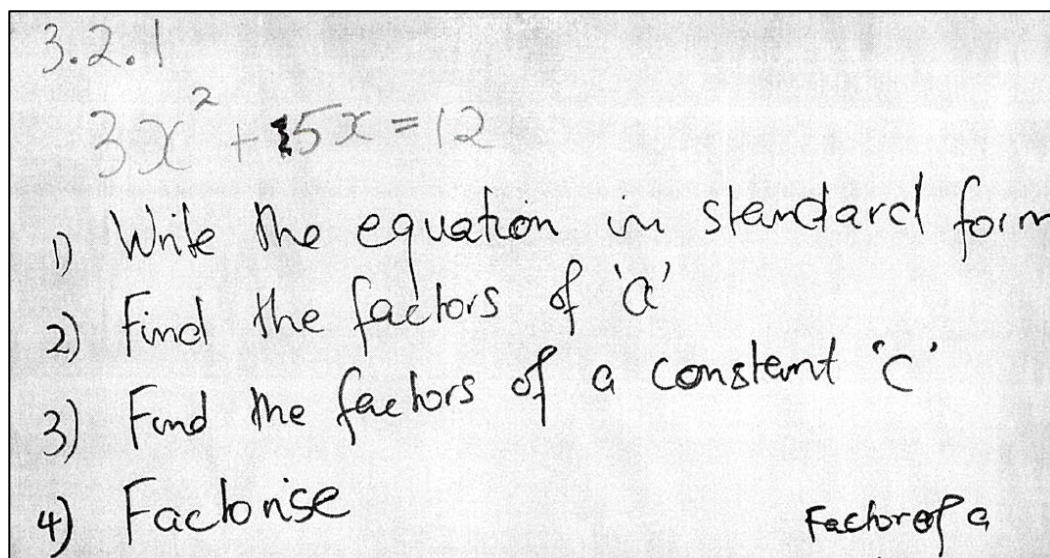 3.2.1
3x² + 5x = 12
1) Write the equation in standard form
2) Find the factors of 'a'
3) Find the factors of a constant 'c'
4) Factorise
Factor of a